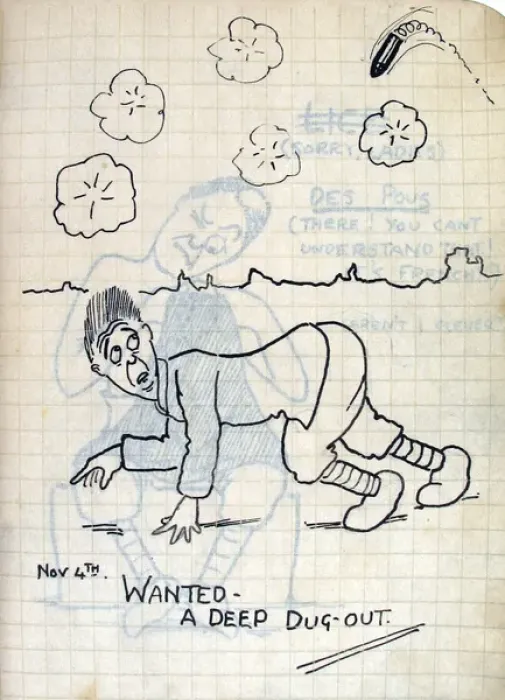 (SORRY, LADIES)
DES POUS
(THERE! YOU CANT
UNDERSTAND
FRENCH!)
AREN'T I CLEVER
Nov 4TH.
WANTED -
A DEEP DUG-OUT.